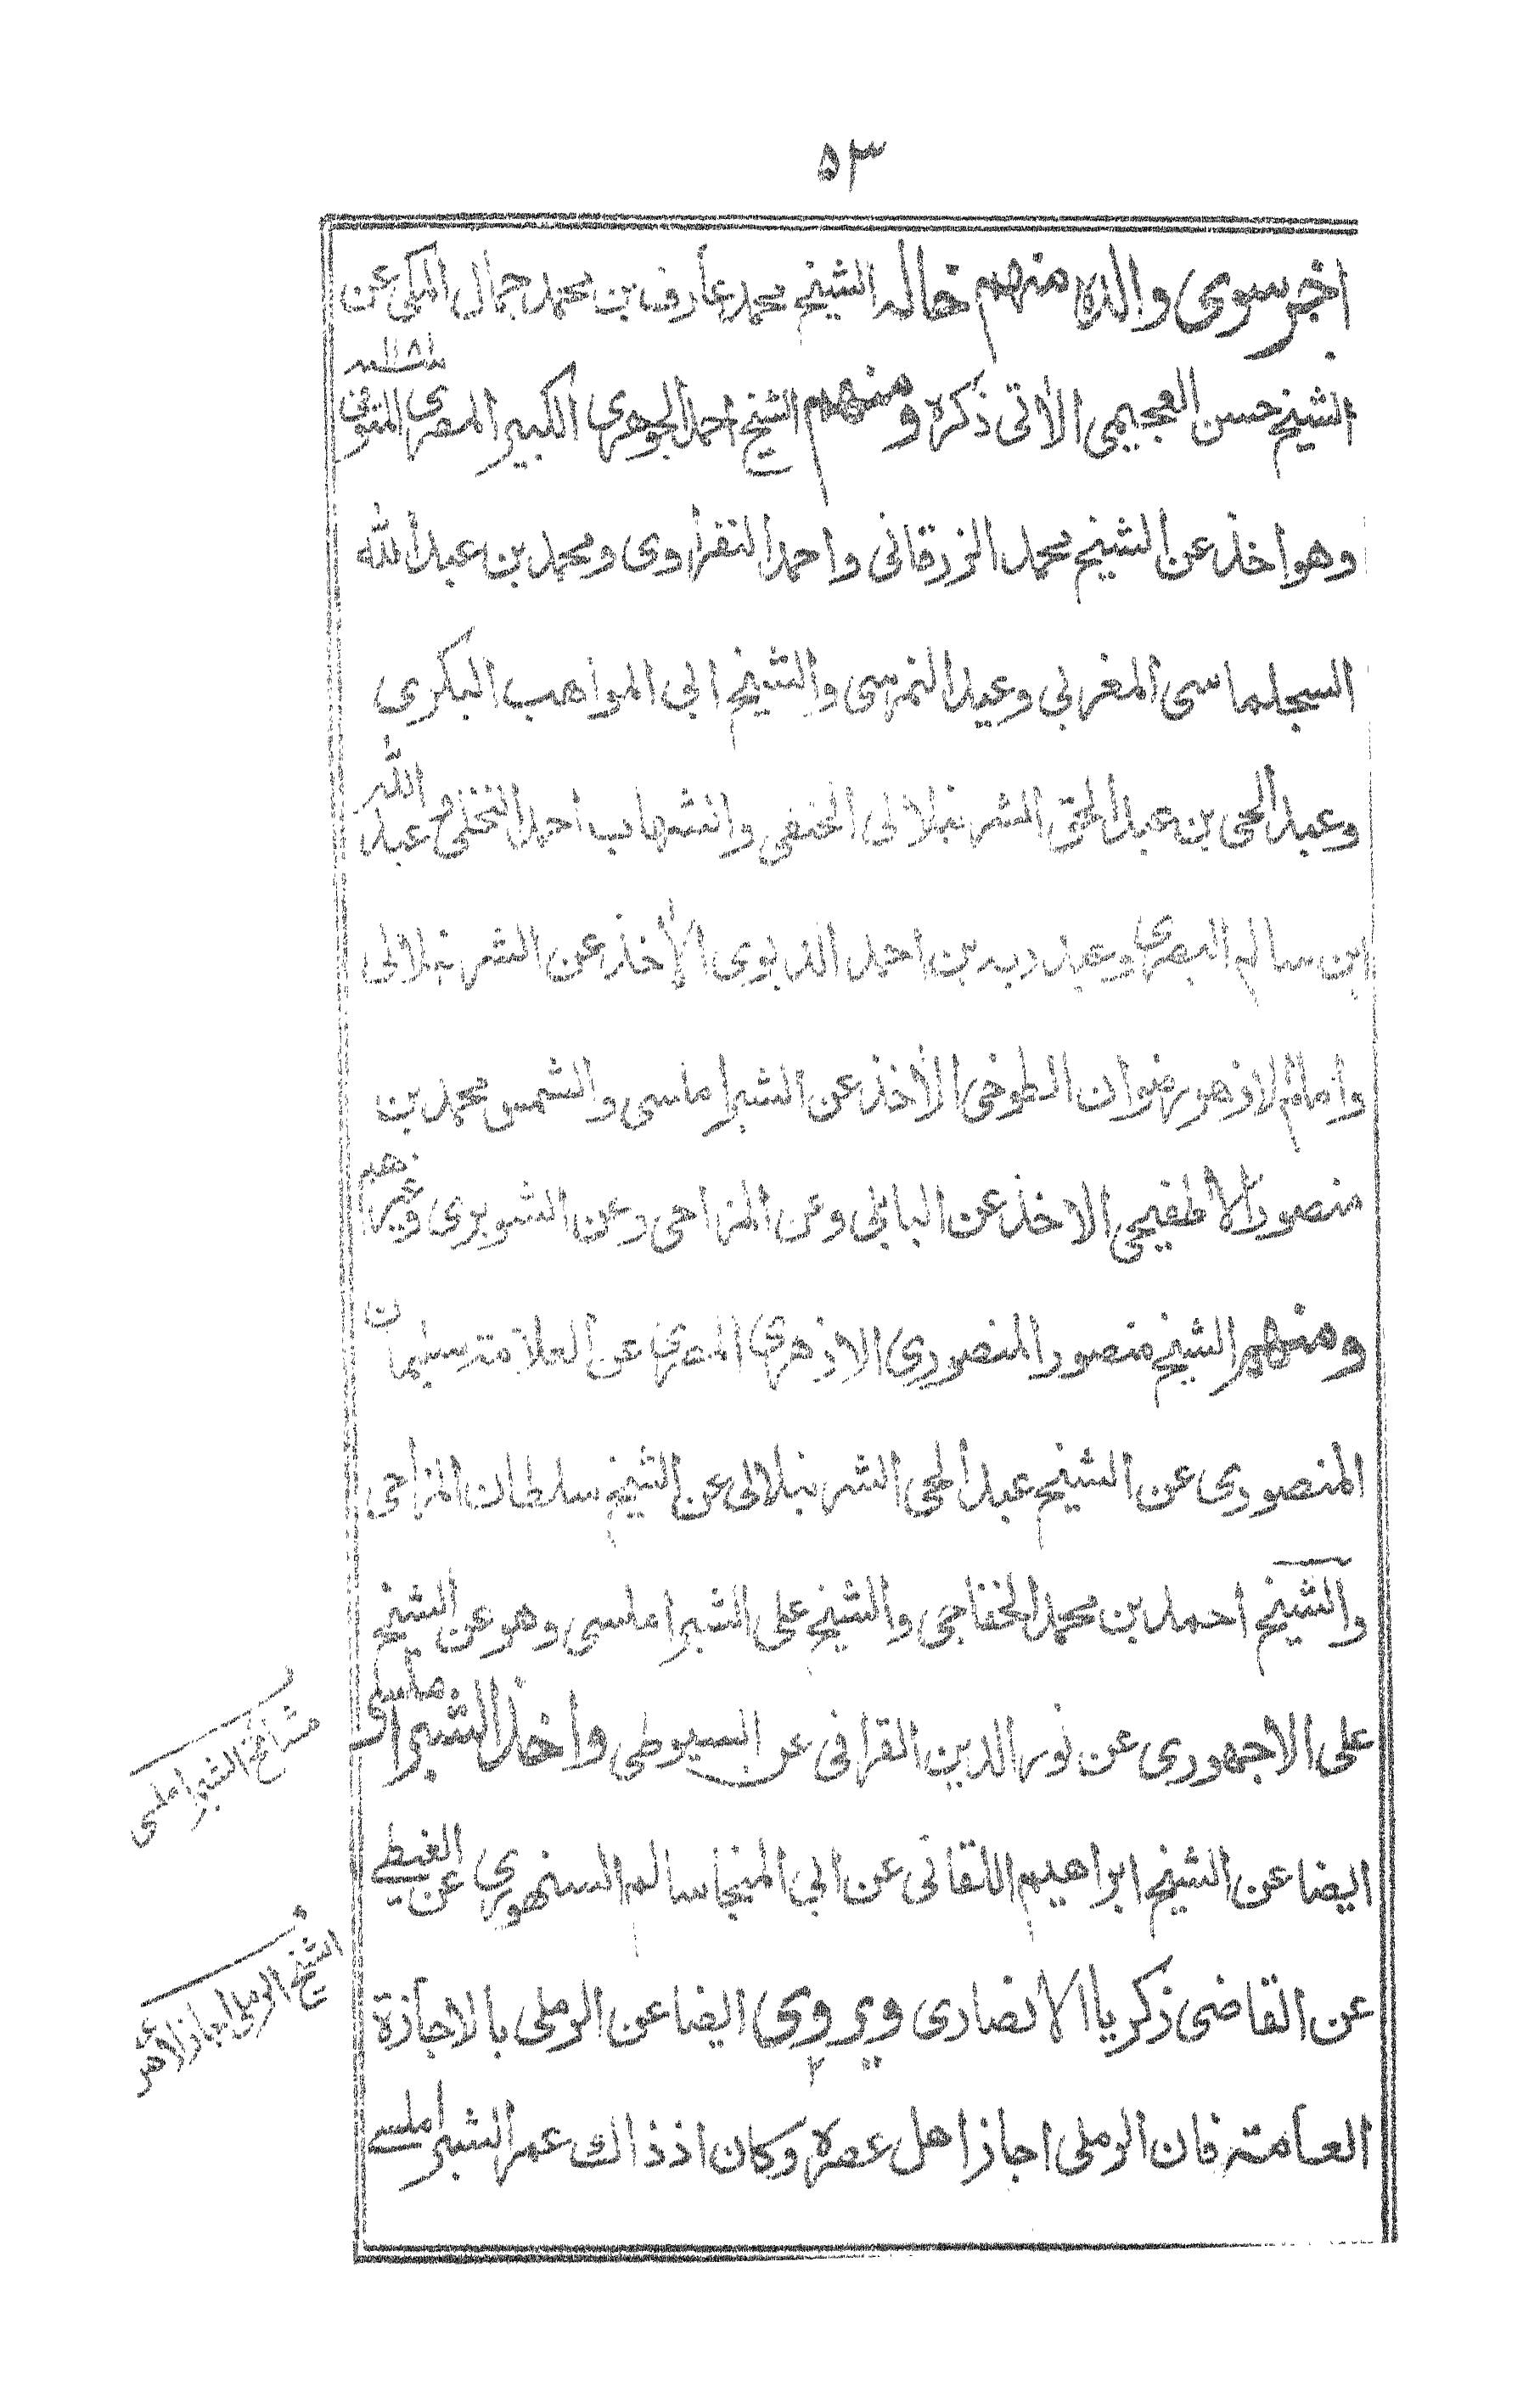 ٥٣
اخر سوى والده منهم خاله الشيخ محمد عارف بن محمد جمال المكى عن
الشيخ حسن العجيمى الاتى ذكره ومنهم الشيخ احمد الجوهرى الكبير المصرى المتوفى
وهو اخذ عن الشيخ محمد الزرقانى واحمد النفراوى ومحمد بن عبد الله
السجلماسى المغربى وعيد النمرسى والشيخ ابى المواهب البكرى
وعبد الحى بن عبد الحق الشرنبلالى الحنفى والشهاب احمد النخلى وعبد الله
ابن سالم البصرى وعبد ربه بن احمد الديوى الاخذ عن الشرنبلالى
وامام الازهر رضوان الطوخى الاخذ عن الشبراملسى والشمس محمد بن
منصور الاطفيحى الاخذ عن البابلى وعن المزاحى وعن الشوبرى وغيرهم
ومنهم الشيخ منصور المنصورى الازهرى المصرى عن العلامة سليمان
المنصورى عن الشيخ عبد الحى الشرنبلالى عن الشيخ سلطان المزاحى
والشيخ احمد بن محمد الخفاجى والشيخ على الشبراملسى وهو عن الشيخ
على الاجهورى عن نور الدين القرافى عن السيوطى واخذ الشبراملسى
ايضا عن الشيخ ابراهيم اللقانى عن ابى المنجا سالم السنهورى عن الغيطى
عن القاضى زكريا الانصارى ويروى ايضا عن الرملى بالاجازة
العامة فان الرملى اجاز اهل عصره وكان اذ ذاك عمر الشبراملسى
مشائخ الشبراملسى
الشيخ الرملى اجاز لاهل